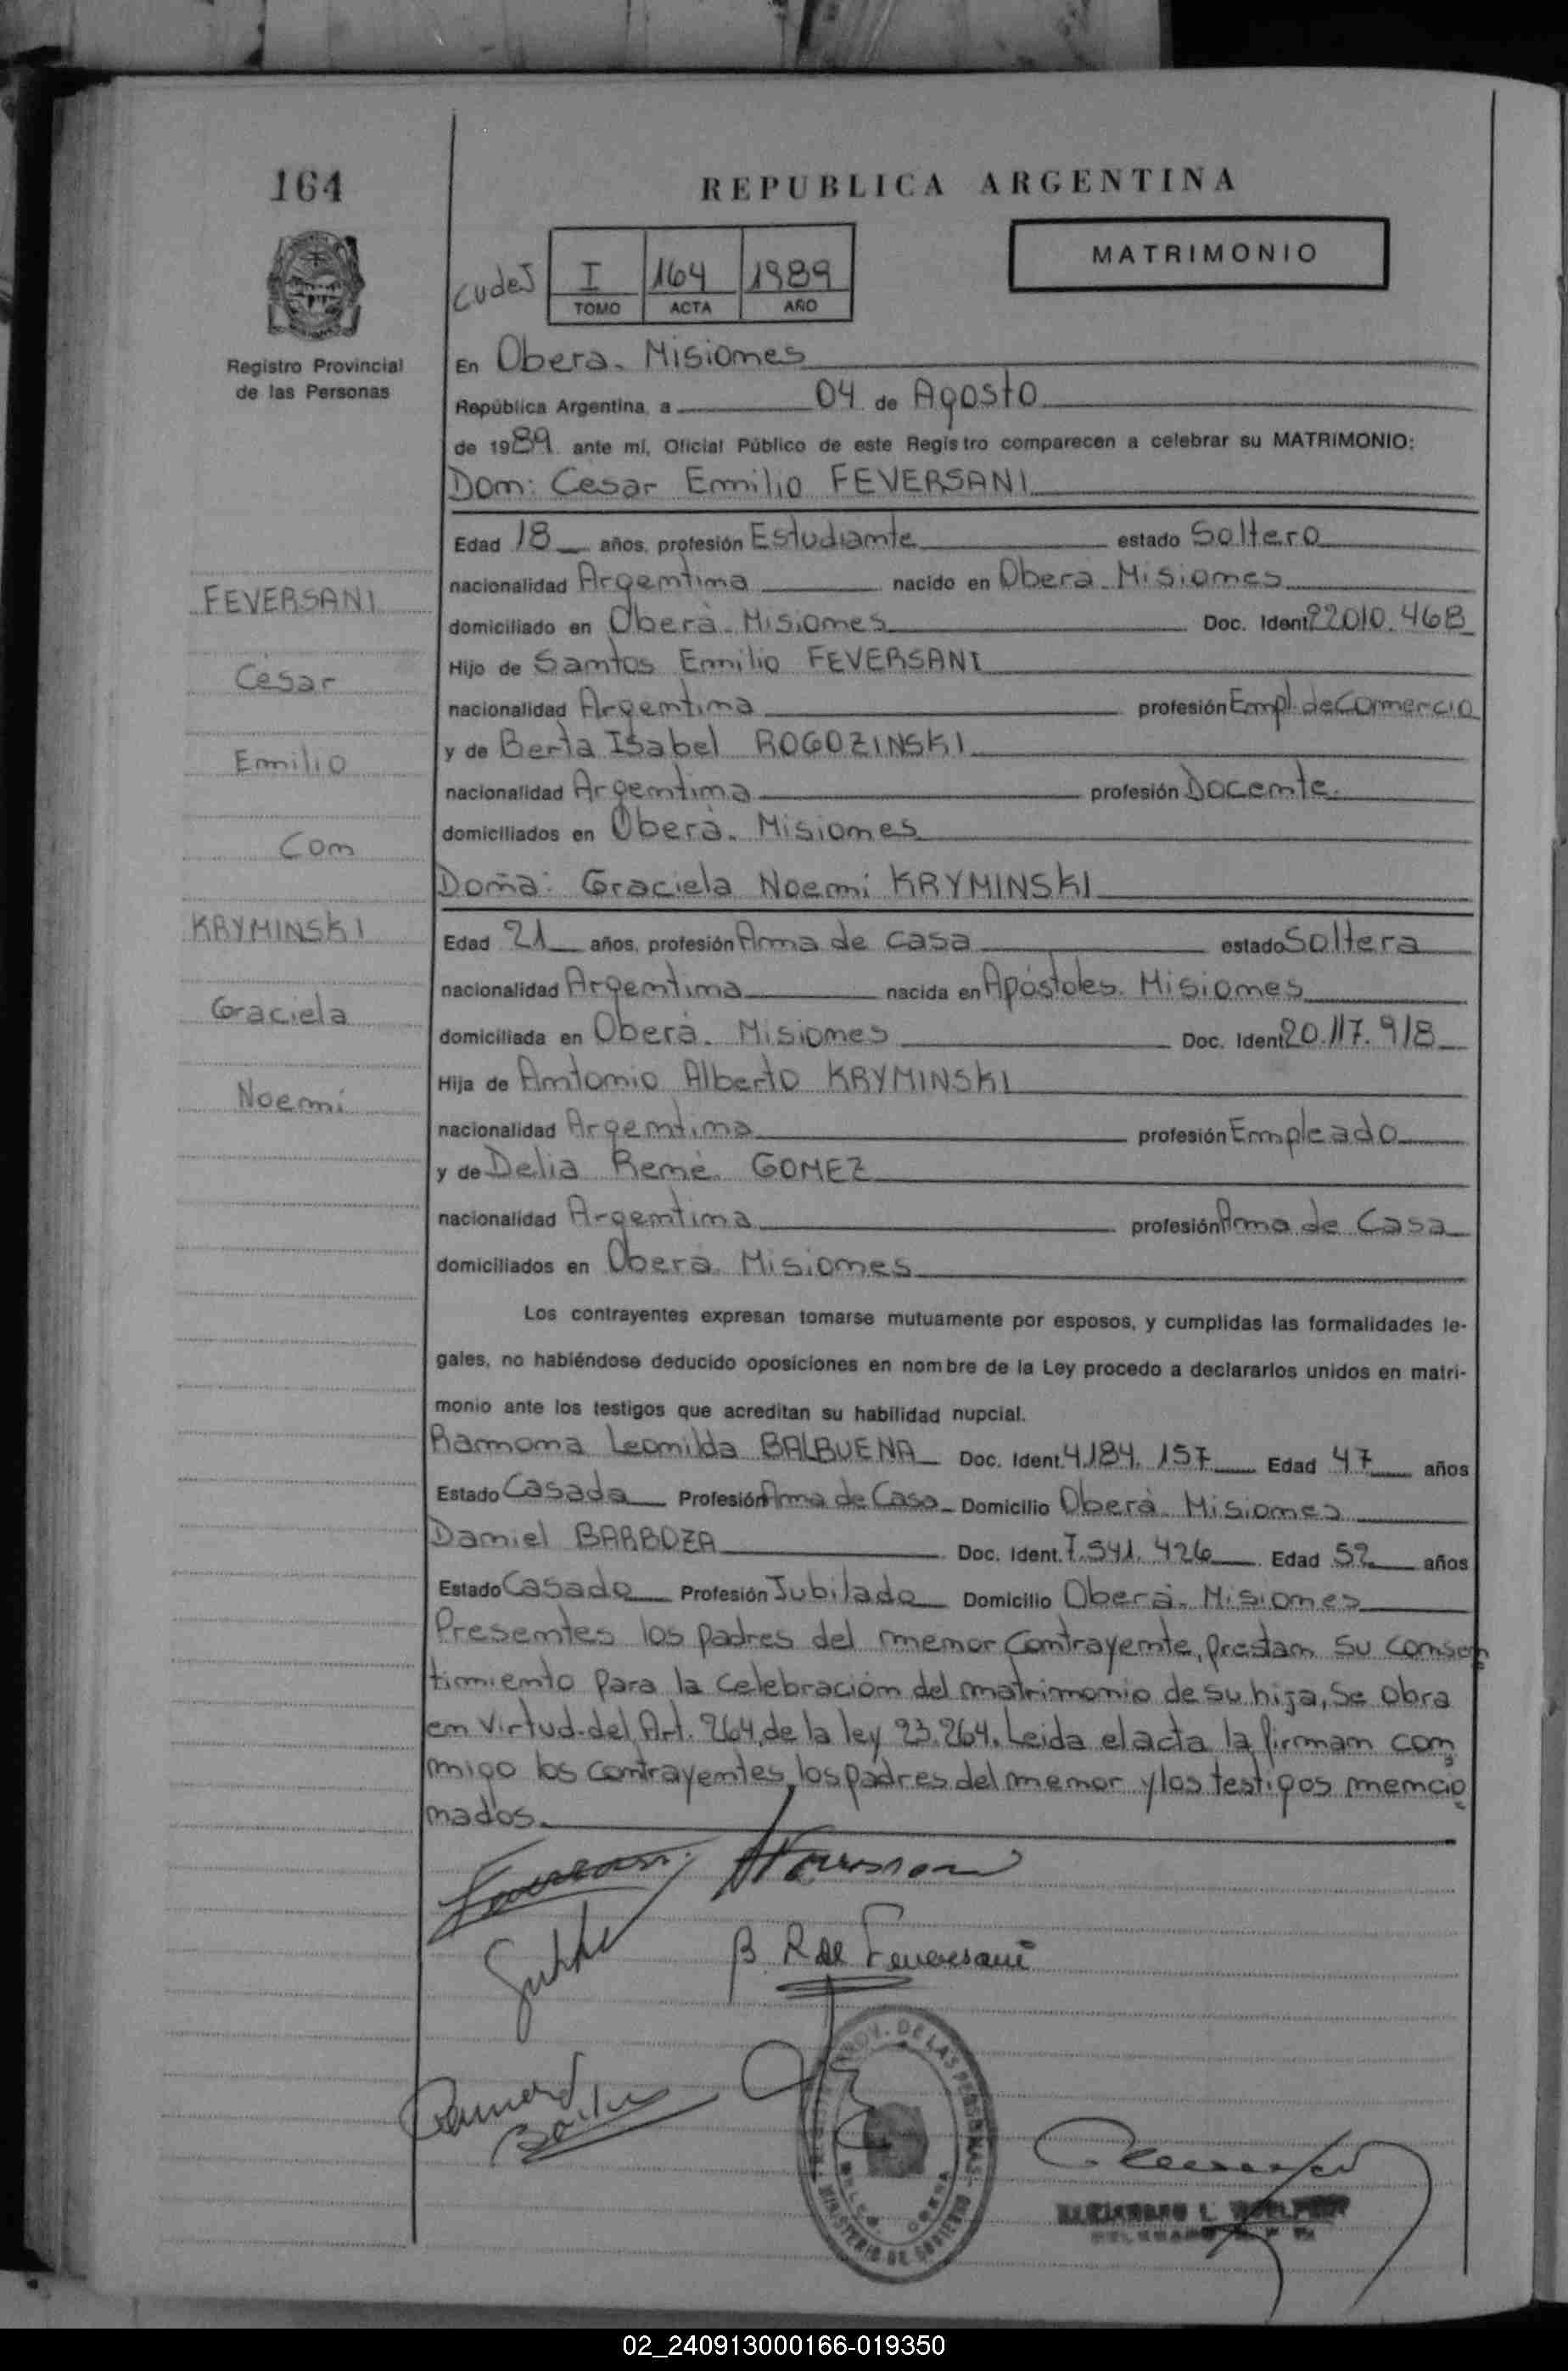 164
REPUBLICA ARGENTINA
MATRIMONIO
I 164 1989
TOMO ACTA AÑO
Registro Provincial
de las Personas
En Obera. Misiones
República Argentina, a 04 de Agosto
de 1989 ante mí, Oficial Público de este Registro comparecen a celebrar su MATRIMONIO:
Don: Cesar Emilio FEVERSANI
Edad 18 años, profesión Estudiante estado Soltero
nacionalidad Argentina nacido en Obera Misiones
domiciliado en Oberá. Misiones Doc. Ident. 22.010.468
Hijo de Santos Emilio FEVERSANI
nacionalidad Argentina profesión Empl. de Comercio
y de Berta Isabel ROGOZINSKI
nacionalidad Argentina profesión Docente.
domiciliados en Oberá. Misiones
Doña: Graciela Noemí KRYMINSKI
Edad 21 años, profesión Ama de casa estado Soltera
nacionalidad Argentina nacida en Apóstoles. Misiones
domiciliada en Oberá. Misiones Doc. Ident 20.117.918
Hija de Antonio Alberto KRYMINSKI
nacionalidad Argentina profesión Empleado
y de Delia René. GOMEZ
nacionalidad Argentina profesión Ama de Casa
domiciliados en Oberá. Misiones
FEVERSANI
César
Emilio
Con
KRYMINSKI
Graciela
Noemí
Los contrayentes expresan tomarse mutuamente por esposos, y cumplidas las formalidades le-
gales, no habiéndose deducido oposiciones en nombre de la Ley procedo a declararlos unidos en matri-
monio ante los testigos que acreditan su habilidad nupcial.
Ramona Leonilda BALBUENA Doc. Ident. 4.184.157 Edad 47 años
Estado Casada Profesión Ama de Casa Domicilio Oberá. Misiones
Daniel BARBOZA Doc. Ident. 7.541.426 Edad 52 años
Estado Casado Profesión Jubilado Domicilio Oberá. Misiones
Presentes los padres del menor Contrayente, prestan su consen
timiento para la celebración del matrimonio de su hija, Se obra
en virtud del Art. 264, de la ley 23.264. Leida el acta la firman con
migo los contrayentes, los padres del menor y los testigos mencio
nados.
B. R de Feversani
PROV. DE LAS PERSONAS
MINISTERIO DE GOBIERNO
02_240913000166-019350